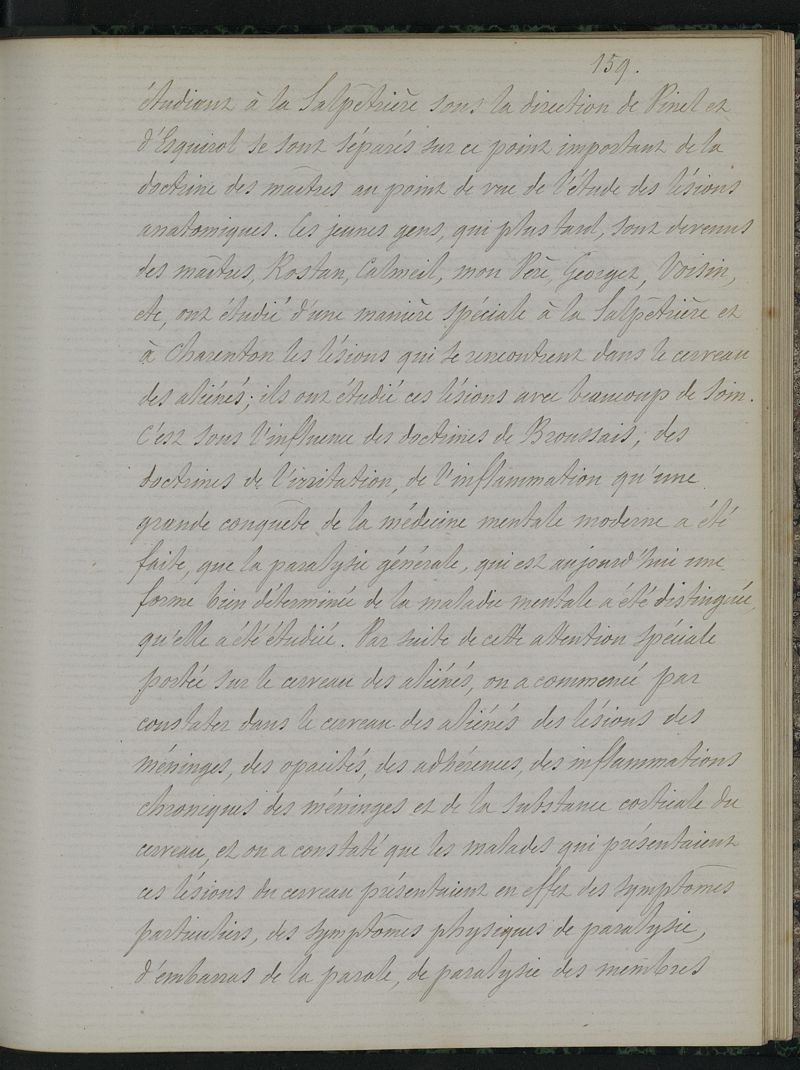 159.
étudiant à la Salpêtrière sous la direction de Pinel et
d'Esquirol se sont séparés sur ce point important de la
doctrine des maîtres au point de vue de l'étude des lésions
anatomiques. Ces jeunes gens, qui plus tard, sont devenus
des maîtres, Rostan, Calmeil, mon Père, Georget, Voisin,
etc, ont étudié d'une manière spéciale à la Salpêtrière et
à Charenton les lésions qui se rencontrent dans le cerveau
des aliénés; ils ont étudié ces lésions avec beaucoup de soin.
C'est sous l'influence des doctrines de Broussais, des
doctrines de l'irritation, de l'inflammation qu'une
grande conquête de la médecine mentale moderne a été
faite, que la paralysie générale, qui est aujourd'hui une
forme bien déterminée de la maladie mentale a été distinguée,
qu'elle a été étudiée. Par suite de cette attention spéciale
portée sur le cerveau des aliénés, on a commencé par
constater dans le cerveau des aliénés des lésions des
méninges, des opacités, des adhérences, des inflammations
chroniques des méninges et de la substance corticale du
cerveau, et on a constaté que les malades qui présentaient
ces lésions du cerveau présentaient en effet des symptômes
particuliers, des symptômes physiques de paralysie,
d'embarras de la parole, de paralysie des membres